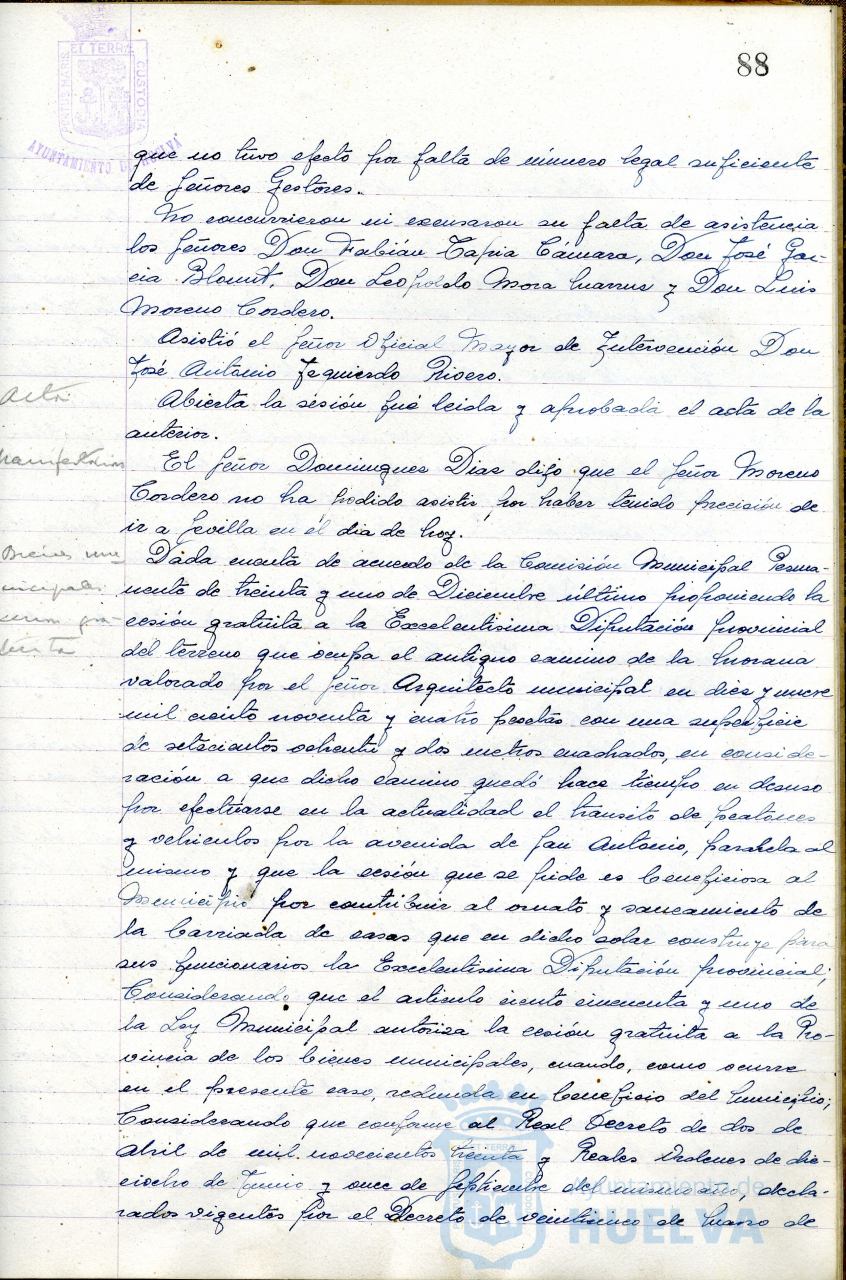 88
PORTUS MARIS ET TERRAE CUSTODIA
AYUNTAMIENTO DE HUELVA
que no tuvo efecto por falta de número legal suficiente
de Señores Gestores.
No concurrieron ni excusaron su falta de asistencia
los Señores Don Fabián Tapia Cámara, Don José Gar-
cia Blount, Don Leopoldo Mora y Don Luis
Moreno Cordero.
Asistió el Señor Oficial Mayor de Intervención Don
José Antonio Izquierdo Rivero.
Acta
Abierta la sesión fué leida y aprobada el acta de la
anterior.
El Señor Domingues Dias dijo que el Señor Moreno
Cordero no ha podido asistir, por haber tenido precisión de
ir a Sevilla en el dia de hoy.
Bienes mu
nicipales
cesion gra-
tuita
Dada cuenta de acuerdo de la Comisión Municipal Perma-
nente de treinta y uno de Diciembre último proponiendo la
cesión gratuita a la Excelentisima Diputación provincial
del terreno que ocupa el antiguo camino de la Morana
valorado por el Señor Arquitecto municipal en dies y nueve
mil ciento noventa y cuatro pesetas con una superficie
de setecientos ochenta y dos metros cuadrados, en conside-
ración a que dicho camino quedó hace tiempo en desuso
por efectuarse en la actualidad el transito de peatones
y vehiculos por la avenida de San Antonio, paralela al
mismo y que la cesión que se pide es beneficiosa al
Municipio por contribuir al ornato y saneamiento de
la barriada de casas que en dicho solar construye para
sus funcionarios la Excelentisima Diputación provincial;
Considerando que el articulo ciento cincuenta y uno de
la Ley Municipal autoriza la cesión gratuita a la Pro-
vincia de los bienes municipales, cuando, como ocurre
en el presente caso, redunda en beneficio del Municipio;
Considerando que conforme al Real Decreto de dos de
Abril de mil novecientos treinta y Reales Ordenes de die-
ciocho de Junio y once de Septiembre del mismo año, decla-
rados vigentes por el Decreto de veinticinco de Marzo de
Ayuntamiento de
HUELVA